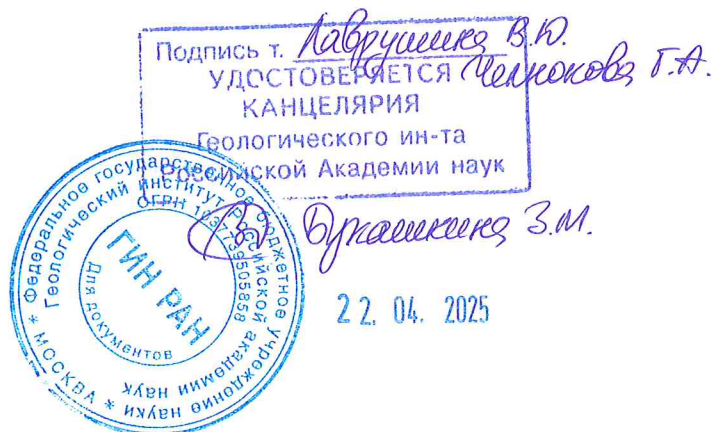 Подпись т. Лаврушина В.Ю.
Челнокова Г.А.
УДОСТОВЕРЯЕТСЯ
КАНЦЕЛЯРИЯ
Геологического ин-та
Российской Академии наук
З.М.
22. 04. 2025
* Федеральное государственное бюджетное учреждение науки * МОСКВА
Геологический институт Российской академии наук
ОГРН 1037739505858
ГИН РАН
Для документов